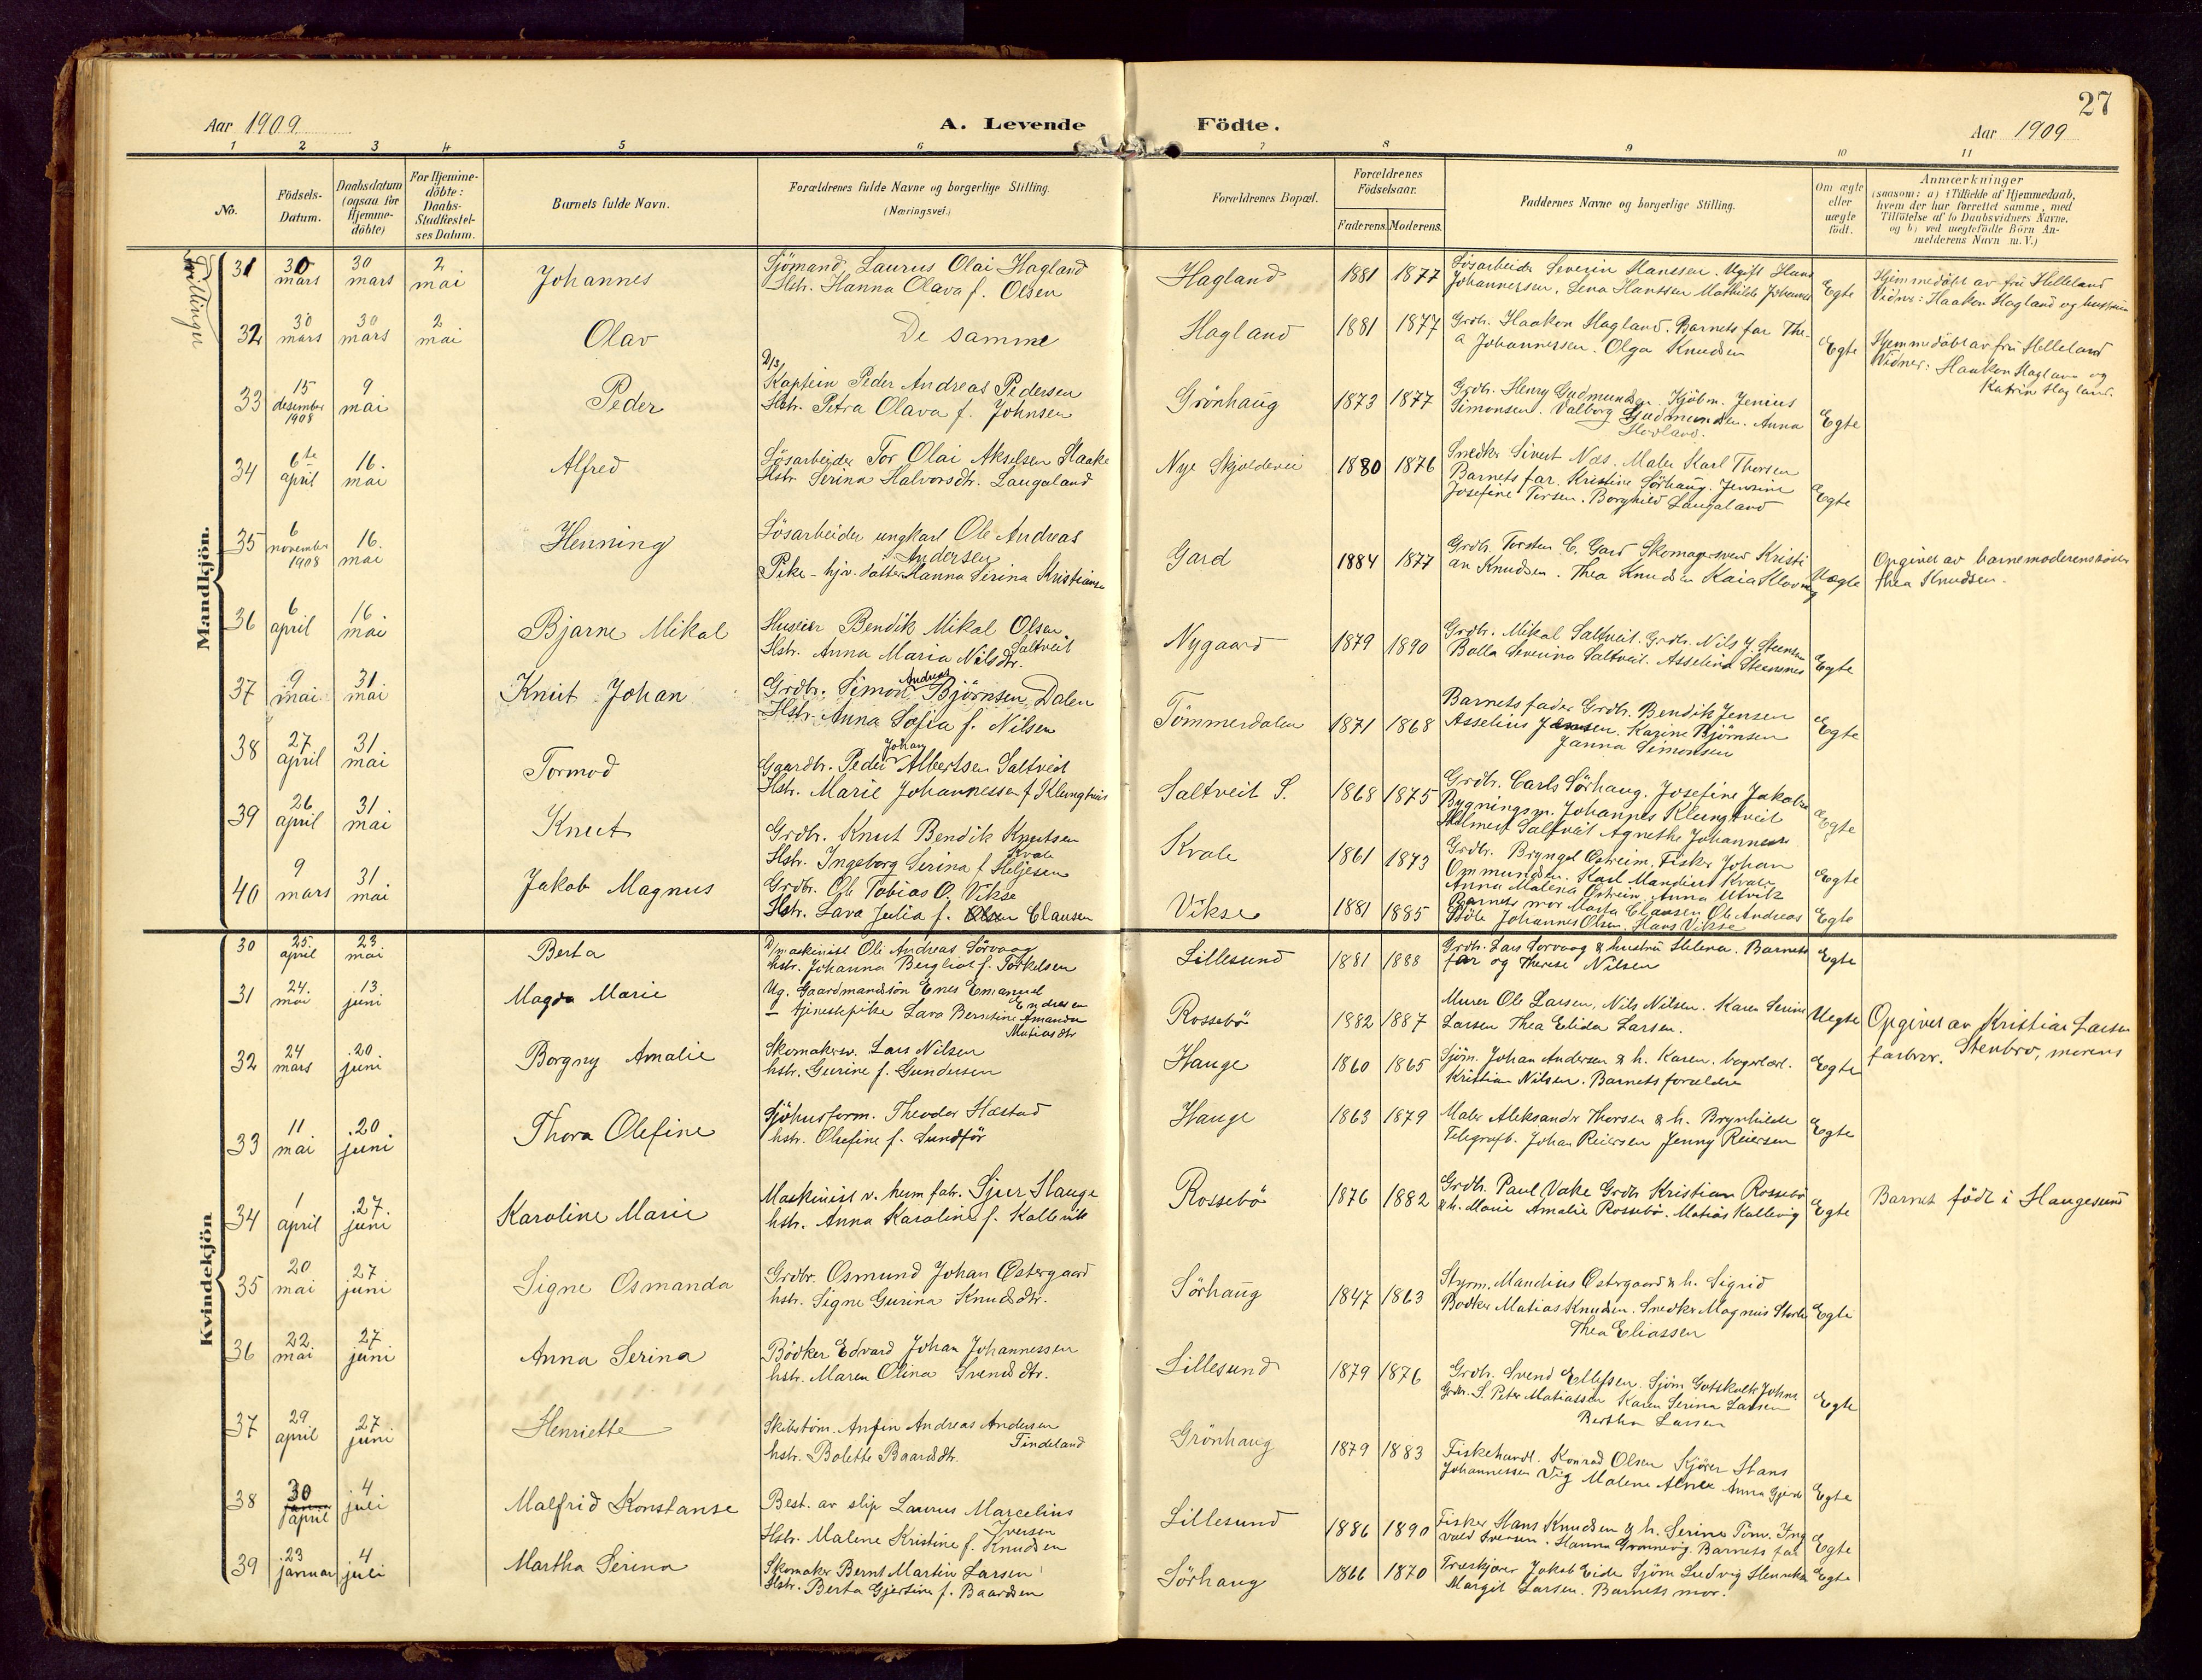 27
Aar 1909
A. Levende Födte.
Aar 1909
1 2 3 4 5 6 7 8 9 10 11
No.
Födsels-
Datum.
Daabsdatum
(ogsaa for
Hjemme-
döbte)
For Hjemme-
döbte:
Daabs-
Stadfæstel-
ses Datum.
Barnets fulde Navn.
Forældrenes fulde Navne og borgerlige Stilling.
(Næringsvei.)
Forældrenes Bopæl.
Forældrenes
Födselsaar.
Faderens. Moderens.
Faddernes Navne og borgerlige Stilling.
Om ægte
eller
uægte
födt.
Anmærkninger
(saasom: a) i Tilfælde af Hjemmedaab,
hvem der har forrettet samme, med
Tilföielse af to Daabsvidners Navne,
og b) ved uægtefödte Börn An-
melderens Navn m. V.)
Mandkjön.
Tvillinger
31 30 mars 30 mars 2 mai Johannes
Sjömand Laurus Olai Hagland
Hstr. Hanna Olava f. Olsen
Hagland 1881 1877
Lösarbeider Severin Hanssen. Ugift Hans
Johannersen. Lena Hanssen Mathilde Johannes
Egte
Hjemmedöbt av fru Helleland
Vidner: Haakon Hagland og hustru
32 30 mars 30 mars 2 mai Olav
De samme
Hagland 1881 1877
Grdbr. Haakon Hagland. Barnets far The-
a Johannessen. Olga Knudsen
Egte
Hjemmedöbt av fru Helleland
Vidner: Haakon Hagland og
Katrin Hagland.
33 15 desember 1908 9 mai Peder
D/S
Kaptein Peder Andreas Pedersen
Hstr. Petra Olava f. Johnsen
Grönhaug 1873 1877
Grdbr. Henry Gudmundsen. Kjöbm. Jenius
Simonsen. Valborg Gudmundsen. Anna
Hovland.
Egte
34 6te april 16. mai Alfred
Lösarbeider Tor Olai Akselsen Haake
Hstr Serina Halvorsdtr. Laugaland
Nye Skjoldevei 1880 1876
Snedker Sivert Næs. Maler Karl Thorsen
Barnets far. Kristine Sörhaug. Jensine
Josefine Torsen. Borghild Laugaland
Egte
35 6 november 1908 16. mai Henning
Lösarbeider ungkarl Ole Andreas
Andersen
Pike - hjv. datter Hanna Serina Kristiansen
Gard 1884 1877
Grdbr. Torsten C. Gard Skomagersvend Kristi
an Knudsen. Thea Knudsen Kaia Klovning
Uægte
Opgivet av barnemoderens söster
Thea Knudsen.
36 6 april 16 mai Bjarne Mikal
Huseier Bendik Mikal Olsen
Saltveit
Hstr. Anna Maria Nilsdtr.
Nygaard 1879 1890
Grdbr. Mikal Saltveit. Grdbr. Nils J. Stensnes
Bolla Severina Saltveit. Asseline Stemnes
Egte
37 9 mai 31 mai Knut Johan
Grdbr. Simon Andreas Björnsen Dalen
Hstr. Anna Sofia f. Nilsen
Tömmerdalen 1871 1868
Barnets fader Grdbr. Bendik Jensen
Asselius Jensen. Kazine Björnsen
Janna Simonsen
Egte
38 27 april 31 mai Tormod
Gaardbr. Peder Johan Albertsen Saltveit
Hstr. Marie Johannessen f Klungtveit
Saltveit S. 1868 1875
Grdbr. Carls Sörhaug. Josefine Jakobsen
Bygningsm. Johannes Klungtveit
Helmert Saltveit Agnethe Johannessen
Egte
39 26 april 31 mai Knut
Grdbr. Knut Bendik Knutsen
Kvale
Hstr. Ingeborg Serina f Heljesen
Kvale 1861 1873
Grdbr. Bryngel Østreim. Fisker Johan
Ommundsen. Karl Mandius Kvale
Anna Malena Østreim. Anna Utvik
Egte
40 9 mars 31 mai Jakob Magnus
Grdbr. Ole Tobias O. Vikse
Hstr. Lava Julia f. Clausen
Vikse 1881 1885
Barnets mor Marta Clausen Ole Andreas
Støle Johannes Olsen. Hans Vikse
Egte
Kvindekjön
30 25. april 23. mai Berta
D/maskinist Ole Andreas Sörvaag
hstr. Johanna Bergliot f. Torkelsen
Lillesund 1881 1888
Grdbr. Lars Sorvaag & hustru Helena. Barnets
far og Therese Nilsen
Egte
31 24. mai 13. juni Magda Marie
Ug. Gaardmandssön Enes Emanuel
Endresen
— tjenestepike Lava Berntine Amanda
Matiasdtr
Rossebö 1882 1887
Murer Ole Larsen, Nils Nilsen. Karen Serine
Larsen Thea Elida Larsen.
Uegte
Opgivet av Kristian Larsen
Stenbro, morens
farbror.
32 24 mars 20. juni Borgny Amalie
Skomakersv. Lars Nilsen
hstr. Gurine f. Gundersen
Hauge 1860 1865
Sjöm. Johan Andersen & h. Karen. bagerlærl.
Kristian Nilsen. Barnets forældre
Egte
33 11 mai 20. juni Thora Olefine
Sjöhusform. Theodor Hæstad
hstr. Olufine f. Sundför
Hauge 1863 1879
Maler Aleksander Thorsen & h. Brynhilde
Telegrafb. Johan Reiersen Jenny Reiersen
Egte
34 1 april 27. juni Karoline Marie
Maskinist v. herm fabr. Sjur Hauge
hstr. Anna Karoline f. Kallevik
Rossebö 1876 1882
Grdbr. Paul Vake Grdbr Kristian Rossebö
& h. Marie Amalie Rossebö. Matias Kallevig
Egte
Barnet födt i Haugesund
35 20 mai 27 juni Signe Osmanda
Grdbr. Osmund Johan Østergaard
hstr. Signe Gurina Knudsdtr.
Sörhaug 1847 1863
Styrm. Mandius Østergaard & h. Sigrid
Bodker Matias Knudsen. Snedker Magnus Storle
Thea Eliassen
Egte
36 22 mai 27 juni Anna Serina
Bödker Edvard Johan Johannessen
hstr. Maren Olina Svendsdtr.
Lillesund 1879 1876
Grdbr. Svend Ellefsen. Sjöm Gotskalk Johns.
Grdbr. S. Peter Matiassen Karen Serina Larsen
Bertha Larsen
Egte
37 29 april 27 juni Henriette
Skibstöm. Anfin Andreas Andersen
Tindeland
hstr. Bolette Baardsdtr.
Grönhaug 1879 1883
Fiskehandl. Konrad Olsen Kjörer Hans
Johannessen Vig Malene Anna Gjerde
Egte
38 30 april 4 juli Malfrid Konstanse
Best. av slip Laurus Marcelius
Iversen
Hstr. Malene Kristine f. Knudsen
Lillesund 1886 1890
Fisker Hans Knudsen & h. Serine Töm. Ing
vald Iversen. Hanna Grønnevig. Barnets far
Egte
39 23 januar 4 juli Martha Serina
Skomaker Bernt Martin Larsen
Hstr. Berta Gjertine f. Baardsen
Sörhaug 1866 1870
Træskjærer Jakob Eide Sjöm Ludvig Henriksen
Margit Larsen. Barnets mor.
Egte